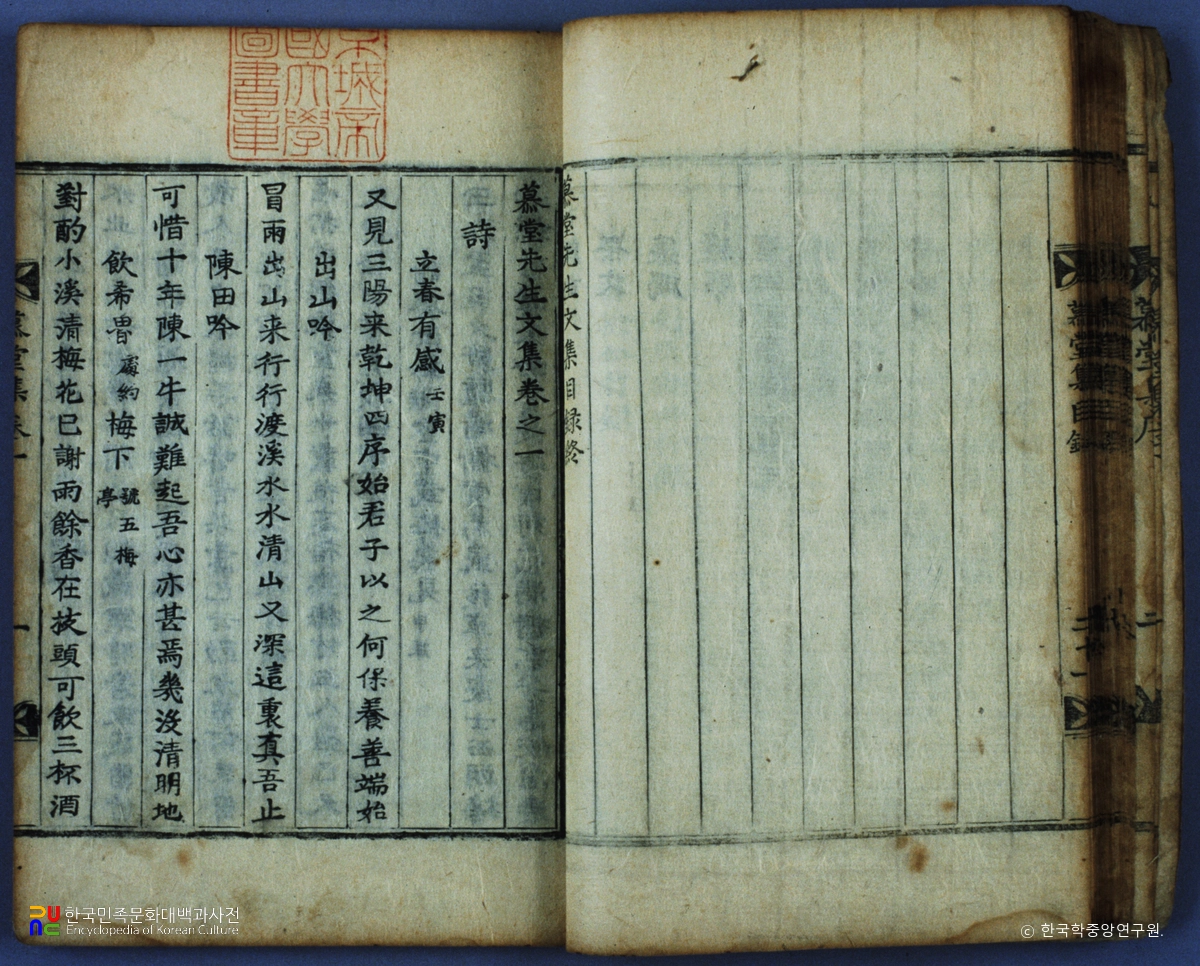 慕堂先生文集目録終
慕堂先生文集卷之一
詩
立春有感 壬寅
又見三陽来乾坤四序始君子以之何保養善端始
出山吟
冒雨出山来行行渡溪水水清山又深這裏真吾止
陳田吟
可惜十年陳一牛誠難起吾心亦甚焉幾沒清明地
飲希魯 處約 梅下 號五梅亭
對酌小溪清梅花已謝雨餘香在枝頭可飲三杯酒
慕堂集卷一
一
慕堂集目録
한국민족문화대백과사전
Encyclopedia of Korean Culture
© 한국학중앙연구원.